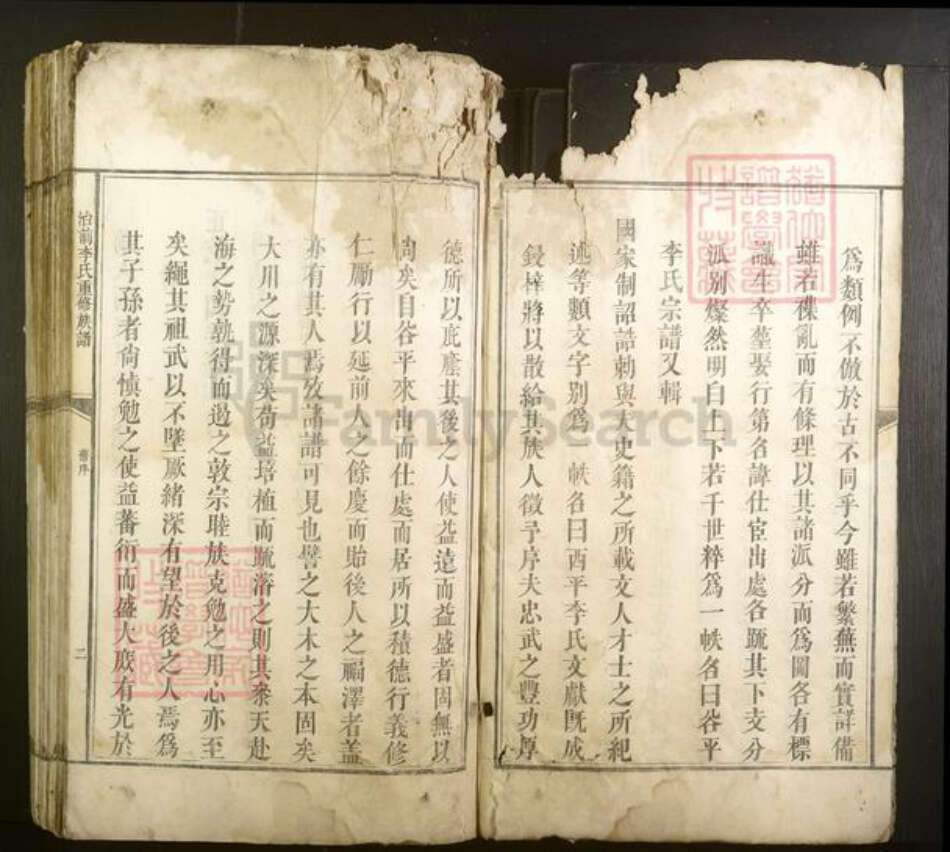 為類例不倣於古不同乎今雖若繁蕪而實詳備
雖若襍亂而有條理以其諸派分而為圖各有標
識生卒塟娶行第名諱仕宦出處各䟽其下支分
派别燦然明白上下若千世粹為一帙名曰谷平
李氏宗譜又輯
國家制詔誥勅與大史籍之所載文人才士之所紀
述等類文字别為一帙名曰西平李氏文獻既成
鋟梓將以散給其族人徵予序夫忠武之豐功厚
德所以庇廕其後之人使益遠而益盛者固無以
尚矣自谷平來出而仕處而居所以積德行義修
仁勵行以延前人之餘慶而貽後人之福澤者葢
亦有其人焉攷諸譜可見也譬之大木之本固矣
大川之源深矣苟益培植而䟽濬之則其參天赴
海之勢孰得而遏之敦宗睦族克勉之用心亦至
矣繩其祖武以不墜厥緒深有望於後之人焉為
其子孫者尚慎勉之使益蕃衍而盛大廒有光於
治前李氏重修族譜
舊序
二
FamilySearch